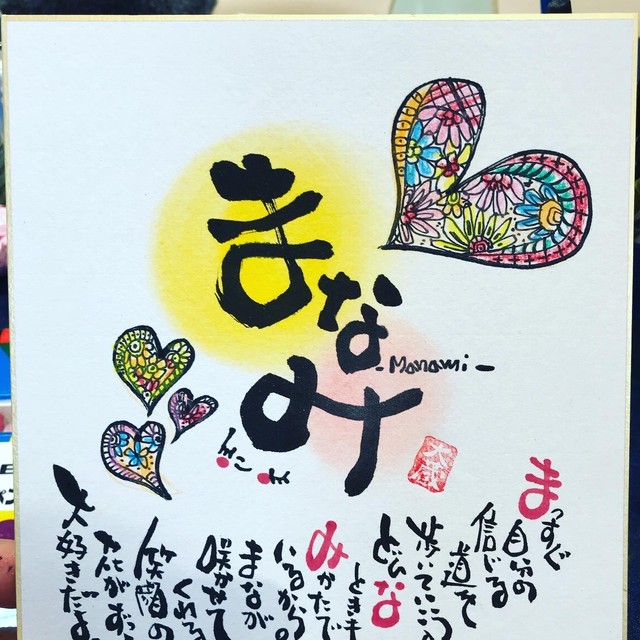 まなみ
-Manami-
まっすぐ
自分の
信じる
道を
歩いていこう
どんな
ときも
みかたで
いるから。
まなが
咲かせて
くれる
笑顔の
花が
大好きだよ